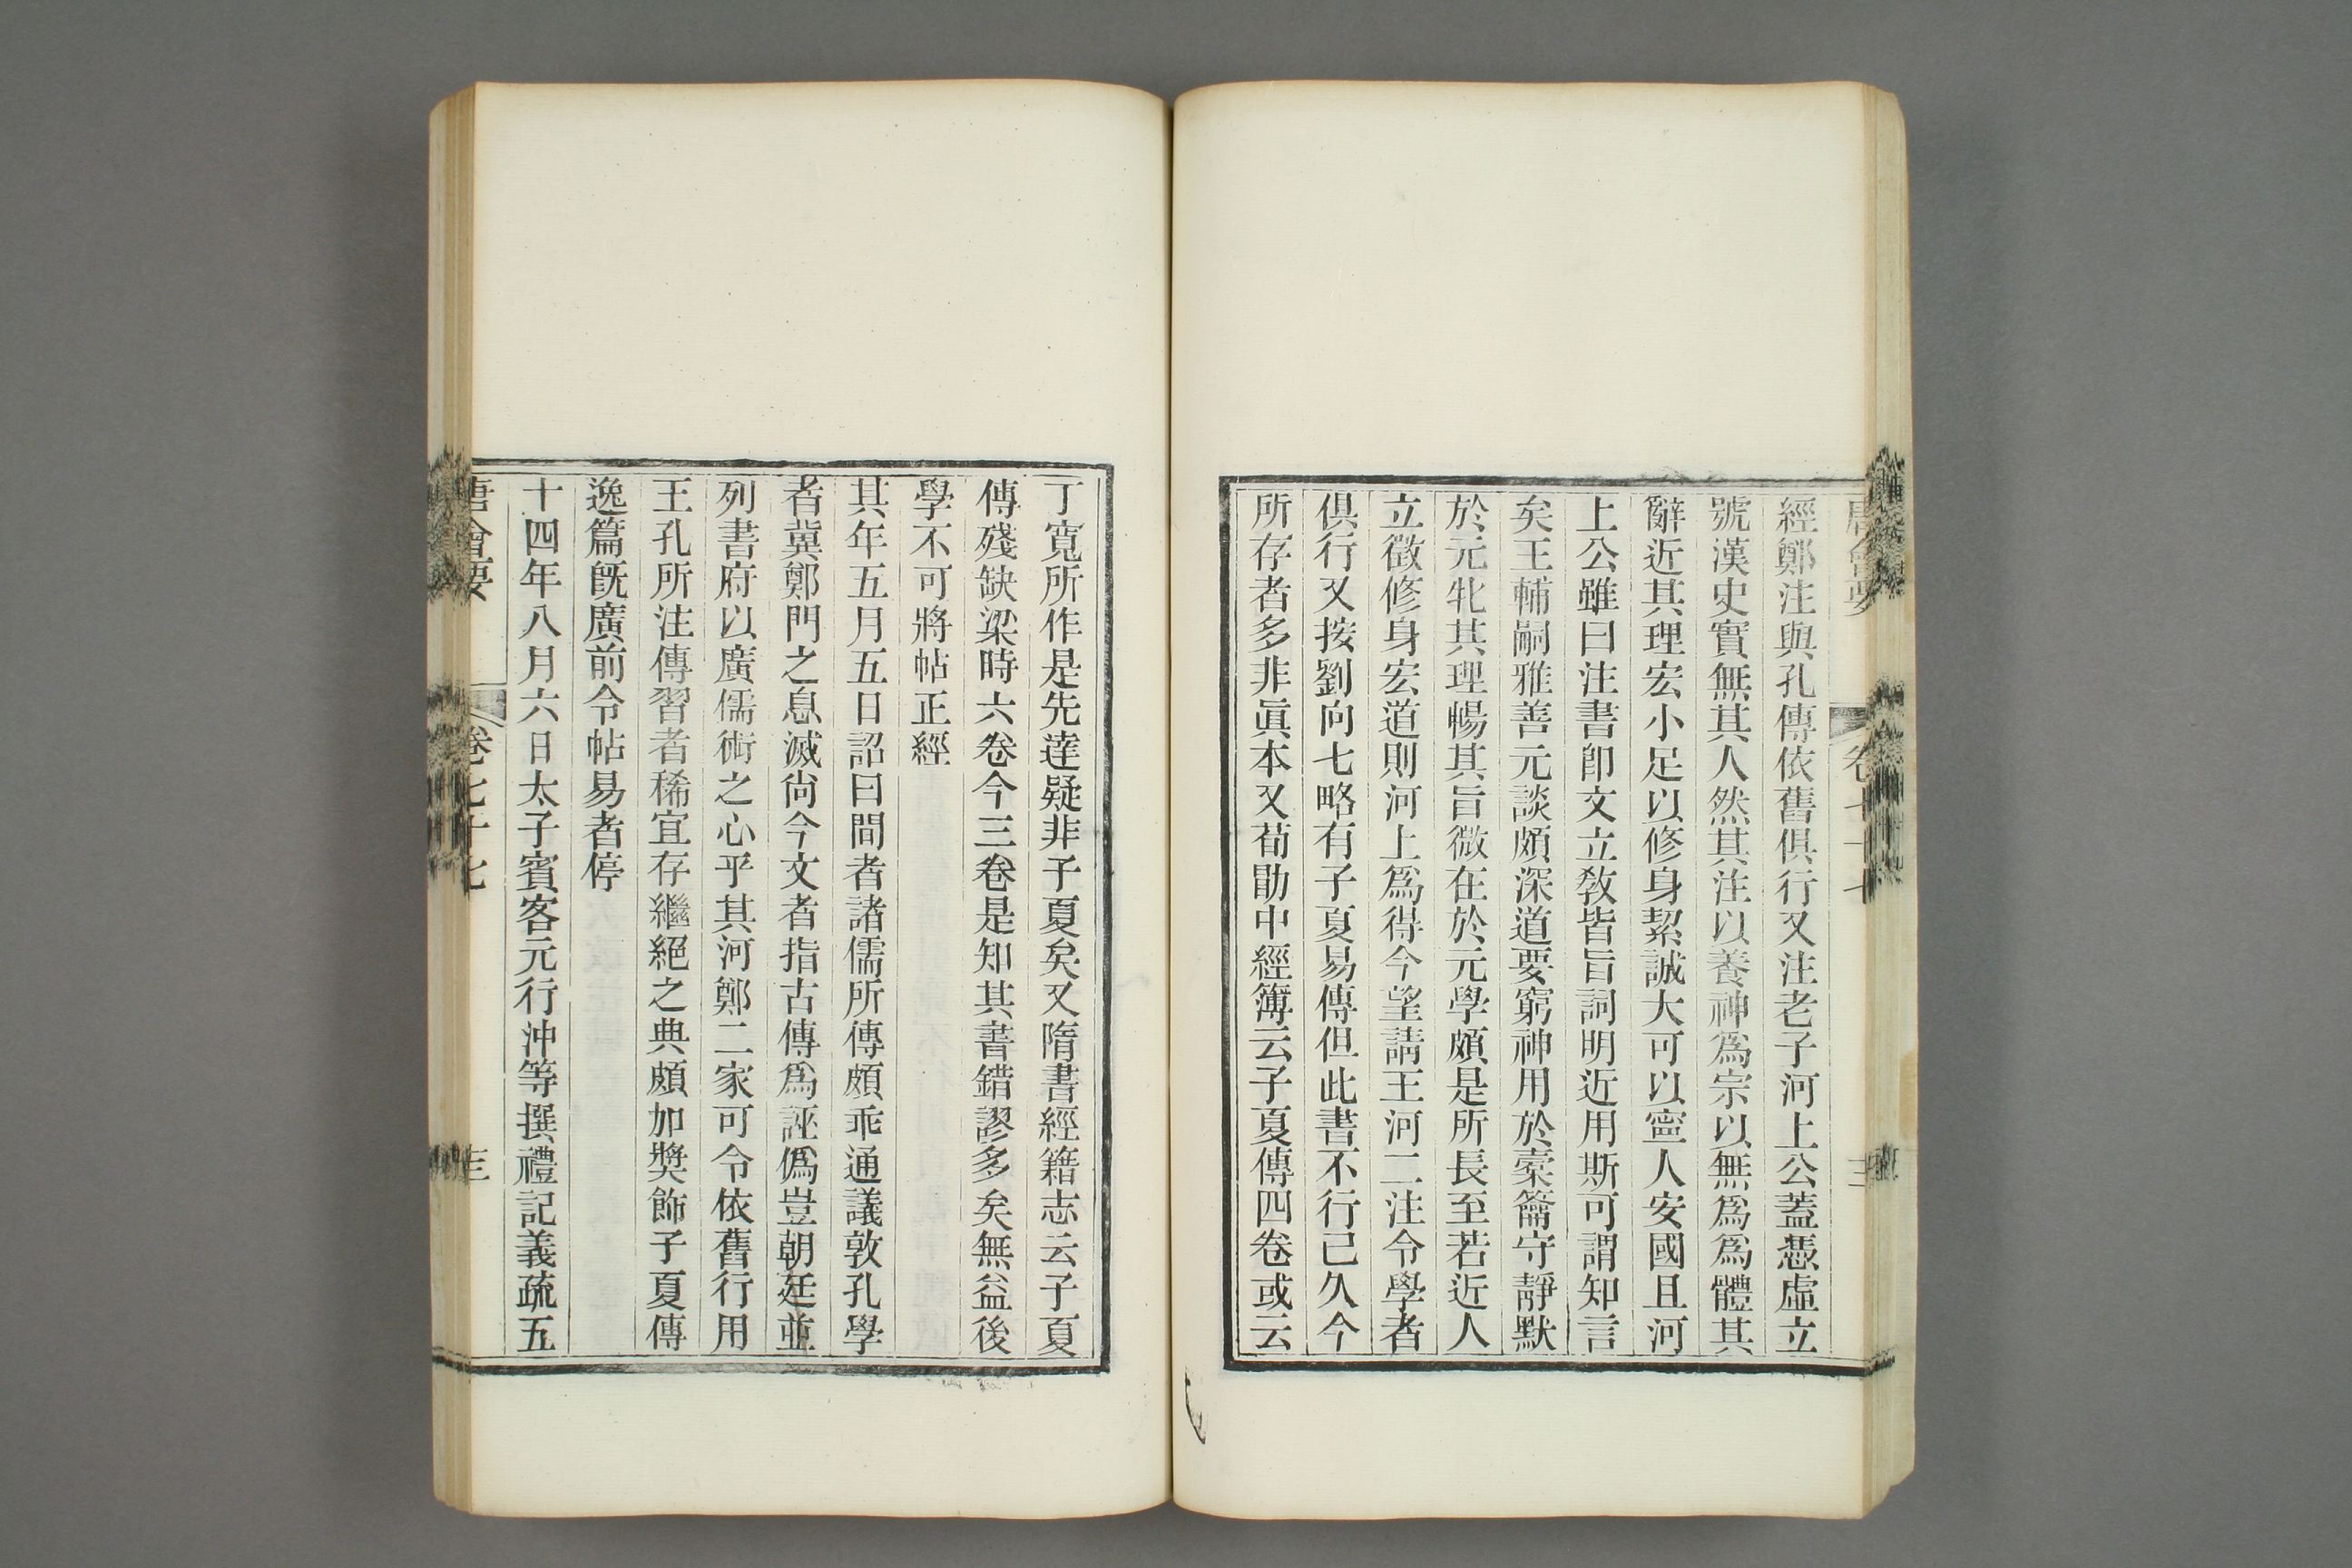 經鄭注與孔傳依舊俱行又注老子河上公蓋憑虛立
號漢史實無其人然其注以養神爲宗以無爲爲體其
辭近其理宏小足以修身絜誠大可以寧人安國且河
上公雖曰注書卽文立敎皆旨詞明近用斯可謂知言
矣王輔嗣雅善元談頗深道要窮神用於槖籥守靜默
於元牝其理暢其旨微在於元學頗是所長至若近人
立徵修身宏道則河上爲得今望請王河二注令學者
俱行又按劉向七略有子夏易傳但此書不行已久今
所存者多非眞本又荀勖中經簿云子夏傳四卷或云
丁寬所作是先達疑非子夏矣又隋書經籍志云子夏
傳殘缺梁時六卷今三卷是知其書錯謬多矣無益後
學不可將帖正經
其年五月五日詔曰間者諸儒所傳頗乖通議敦孔學
者冀鄭門之息滅尙今文者指古傳爲誣僞豈朝廷並
列書府以廣儒術之心乎其河鄭二家可令依舊行用
王孔所注傳習者稀宜存繼絕之典頗加獎飾子夏傳
逸篇旣廣前令帖易者停
十四年八月六日太子賓客元行沖等撰禮記義疏五
唐會要 卷七十七 三